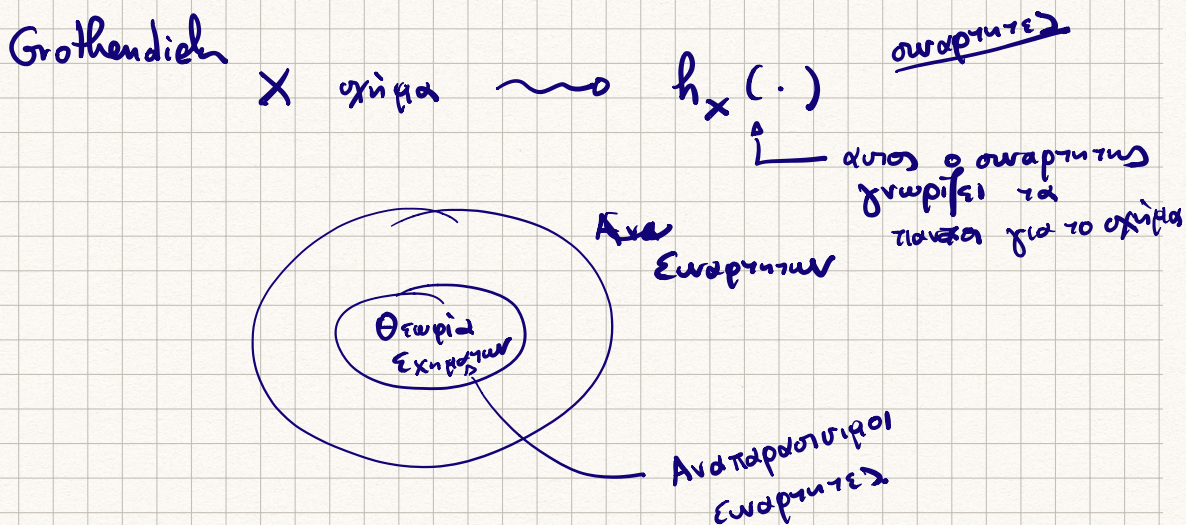 Grothendieck
συναρτητες
X σχήμα h_X (·)
αυτος ο συναρτητης
γνωριζει τα
παντα για το σχήμα
Συναρτητων
Θεωρία
Σχημάτων
Αναπαραστισιμοι
Συναρτητες